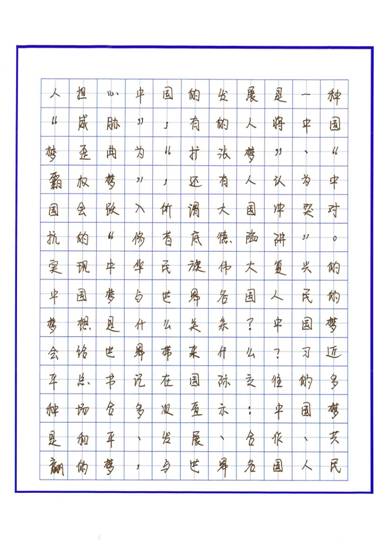 人担心中国的发展是一种
“威胁”，有的人将中国
梦歪曲为“扩张梦”、“
霸权梦”，还有人认为中
国会跌入所谓大国冲突对
抗的“修昔底德陷阱”。
实现中华民族伟大复兴的
中国梦与世界各国人民的
梦想是什么关系？中国梦
会给世界带来什么？习近
平总书记在国际交往的多
种场合多次宣示：中国梦
是和平、发展、合作、共
赢的梦，与世界各国人民